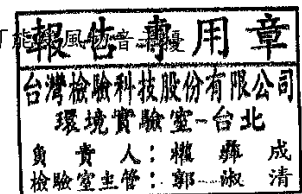 報告專用章
台灣檢驗科技股份有限公司
環境實驗室-台北
負責人：楊 成
檢驗室主管：郭淑清